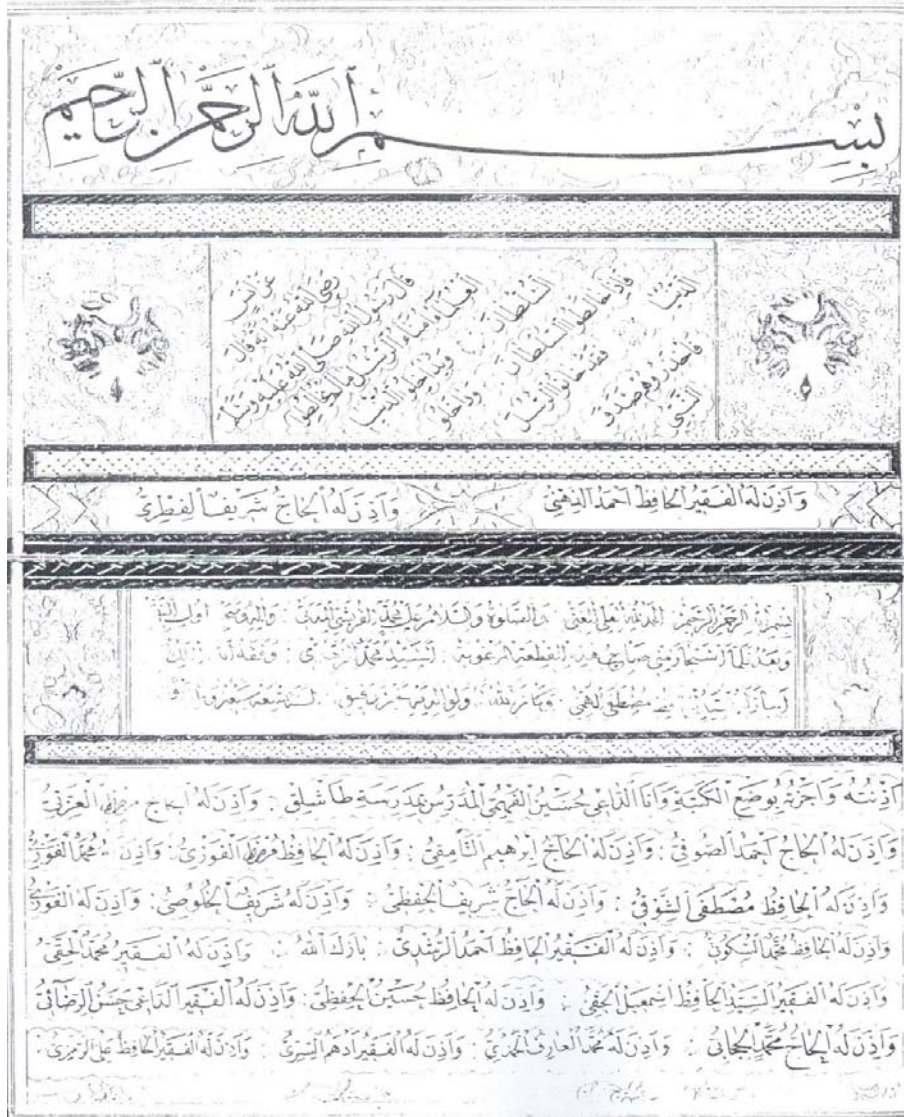 بسم الله الرحمن الرحيم
عن أنس
رضي الله عنه أنه قال
قال رسول الله صلى الله عليه وسلم
العلماء أمناء الرسل ما لم يخالطوا
السلطان ويداخلوا الدنيا
فإذا خالطوا السلطان وداخلوا
الدنيا فقد خانوا الرسل
فاحذروهم صدق
النبي
وأذن له الفقير الحافظ أحمد الذهني
وأذن له الحاج شريف الفطري
بسم الله الرحمن الرحيم الحمد لله العلي الغني والصلوة والسلام على محمد القرشي المدني
وبعد لما استجاز مني صاحب هذه القطعة المرغوبة السيد محمد
مصطفى
أذنته وأجزته بوضع الكتبة وأنا الداعي حسين الفهمي المدرس بمدرسة طاشلق وأذن له الحاج العزتي
وأذن له الحاج أحمد الصوفي وأذن له الحاج إبرهيم النامقي وأذن له الحافظ الفوزي وأذن له محمد الفوزي
وأذن له الحافظ مصطفى الشوقي وأذن له الحاج شريف الحفظي وأذن له شريف الخلوصي وأذن له الفوزي
وأذن له الحافظ محمد السكوتي وأذن له الفقير الحافظ أحمد الرشدي بارك الله وأذن له الفقير محمد الحقي
وأذن له الفقير السيد الحافظ اسمعيل الحقي وأذن له الحافظ حسين الحفظي وأذن له الفقير الداعي حسن الرضائي
وأذن له الحاج محمد وأذن له محمد العارف الحمدي وأذن له الفقير أدهم اليسري وأذن له الفقير الحافظ علي الرمزي